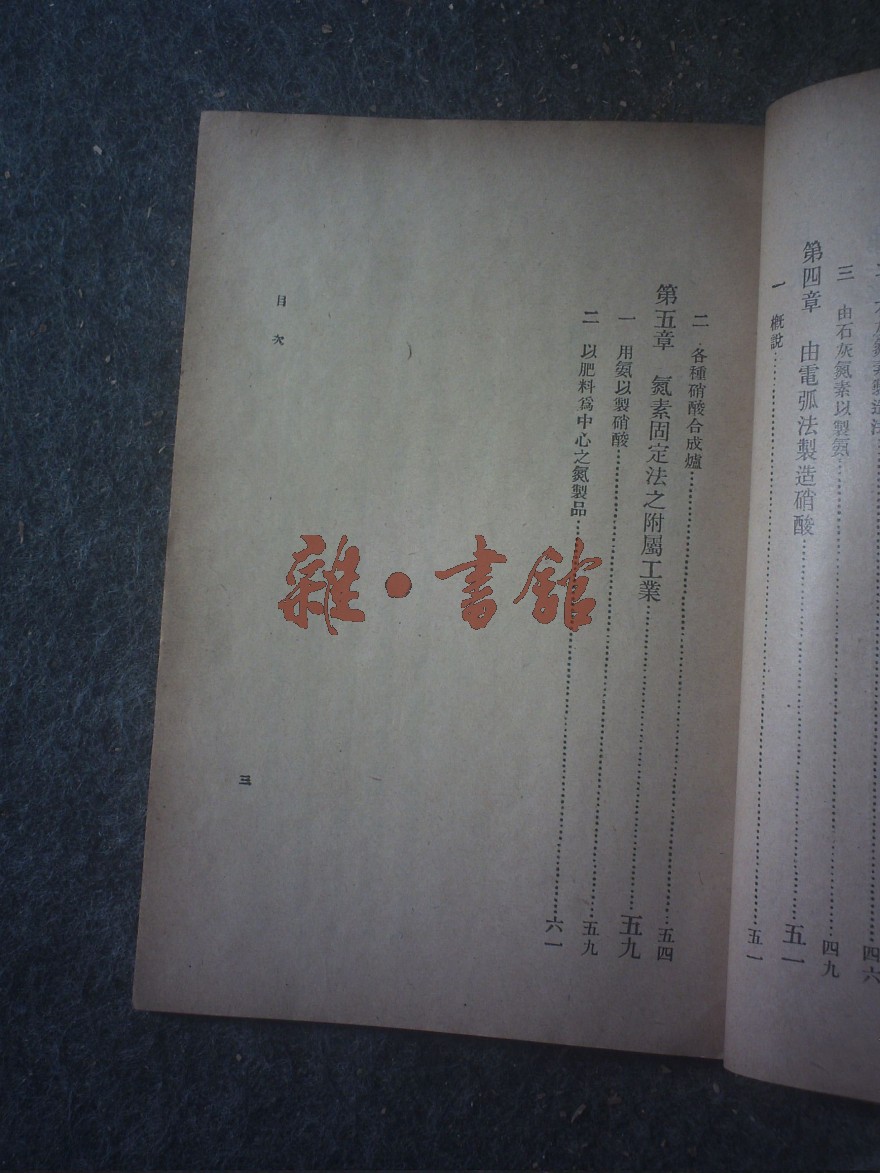 三 由石灰氮素以製氨……四九
第四章 由電弧法製造硝酸……五一
一 概說……五一
二 各種硝酸合成爐……五四
第五章 氮素固定法之附屬工業……五九
一 用氨以製硝酸……五九
二 以肥料爲中心之氮製品……六一
目次
三
雜·書館